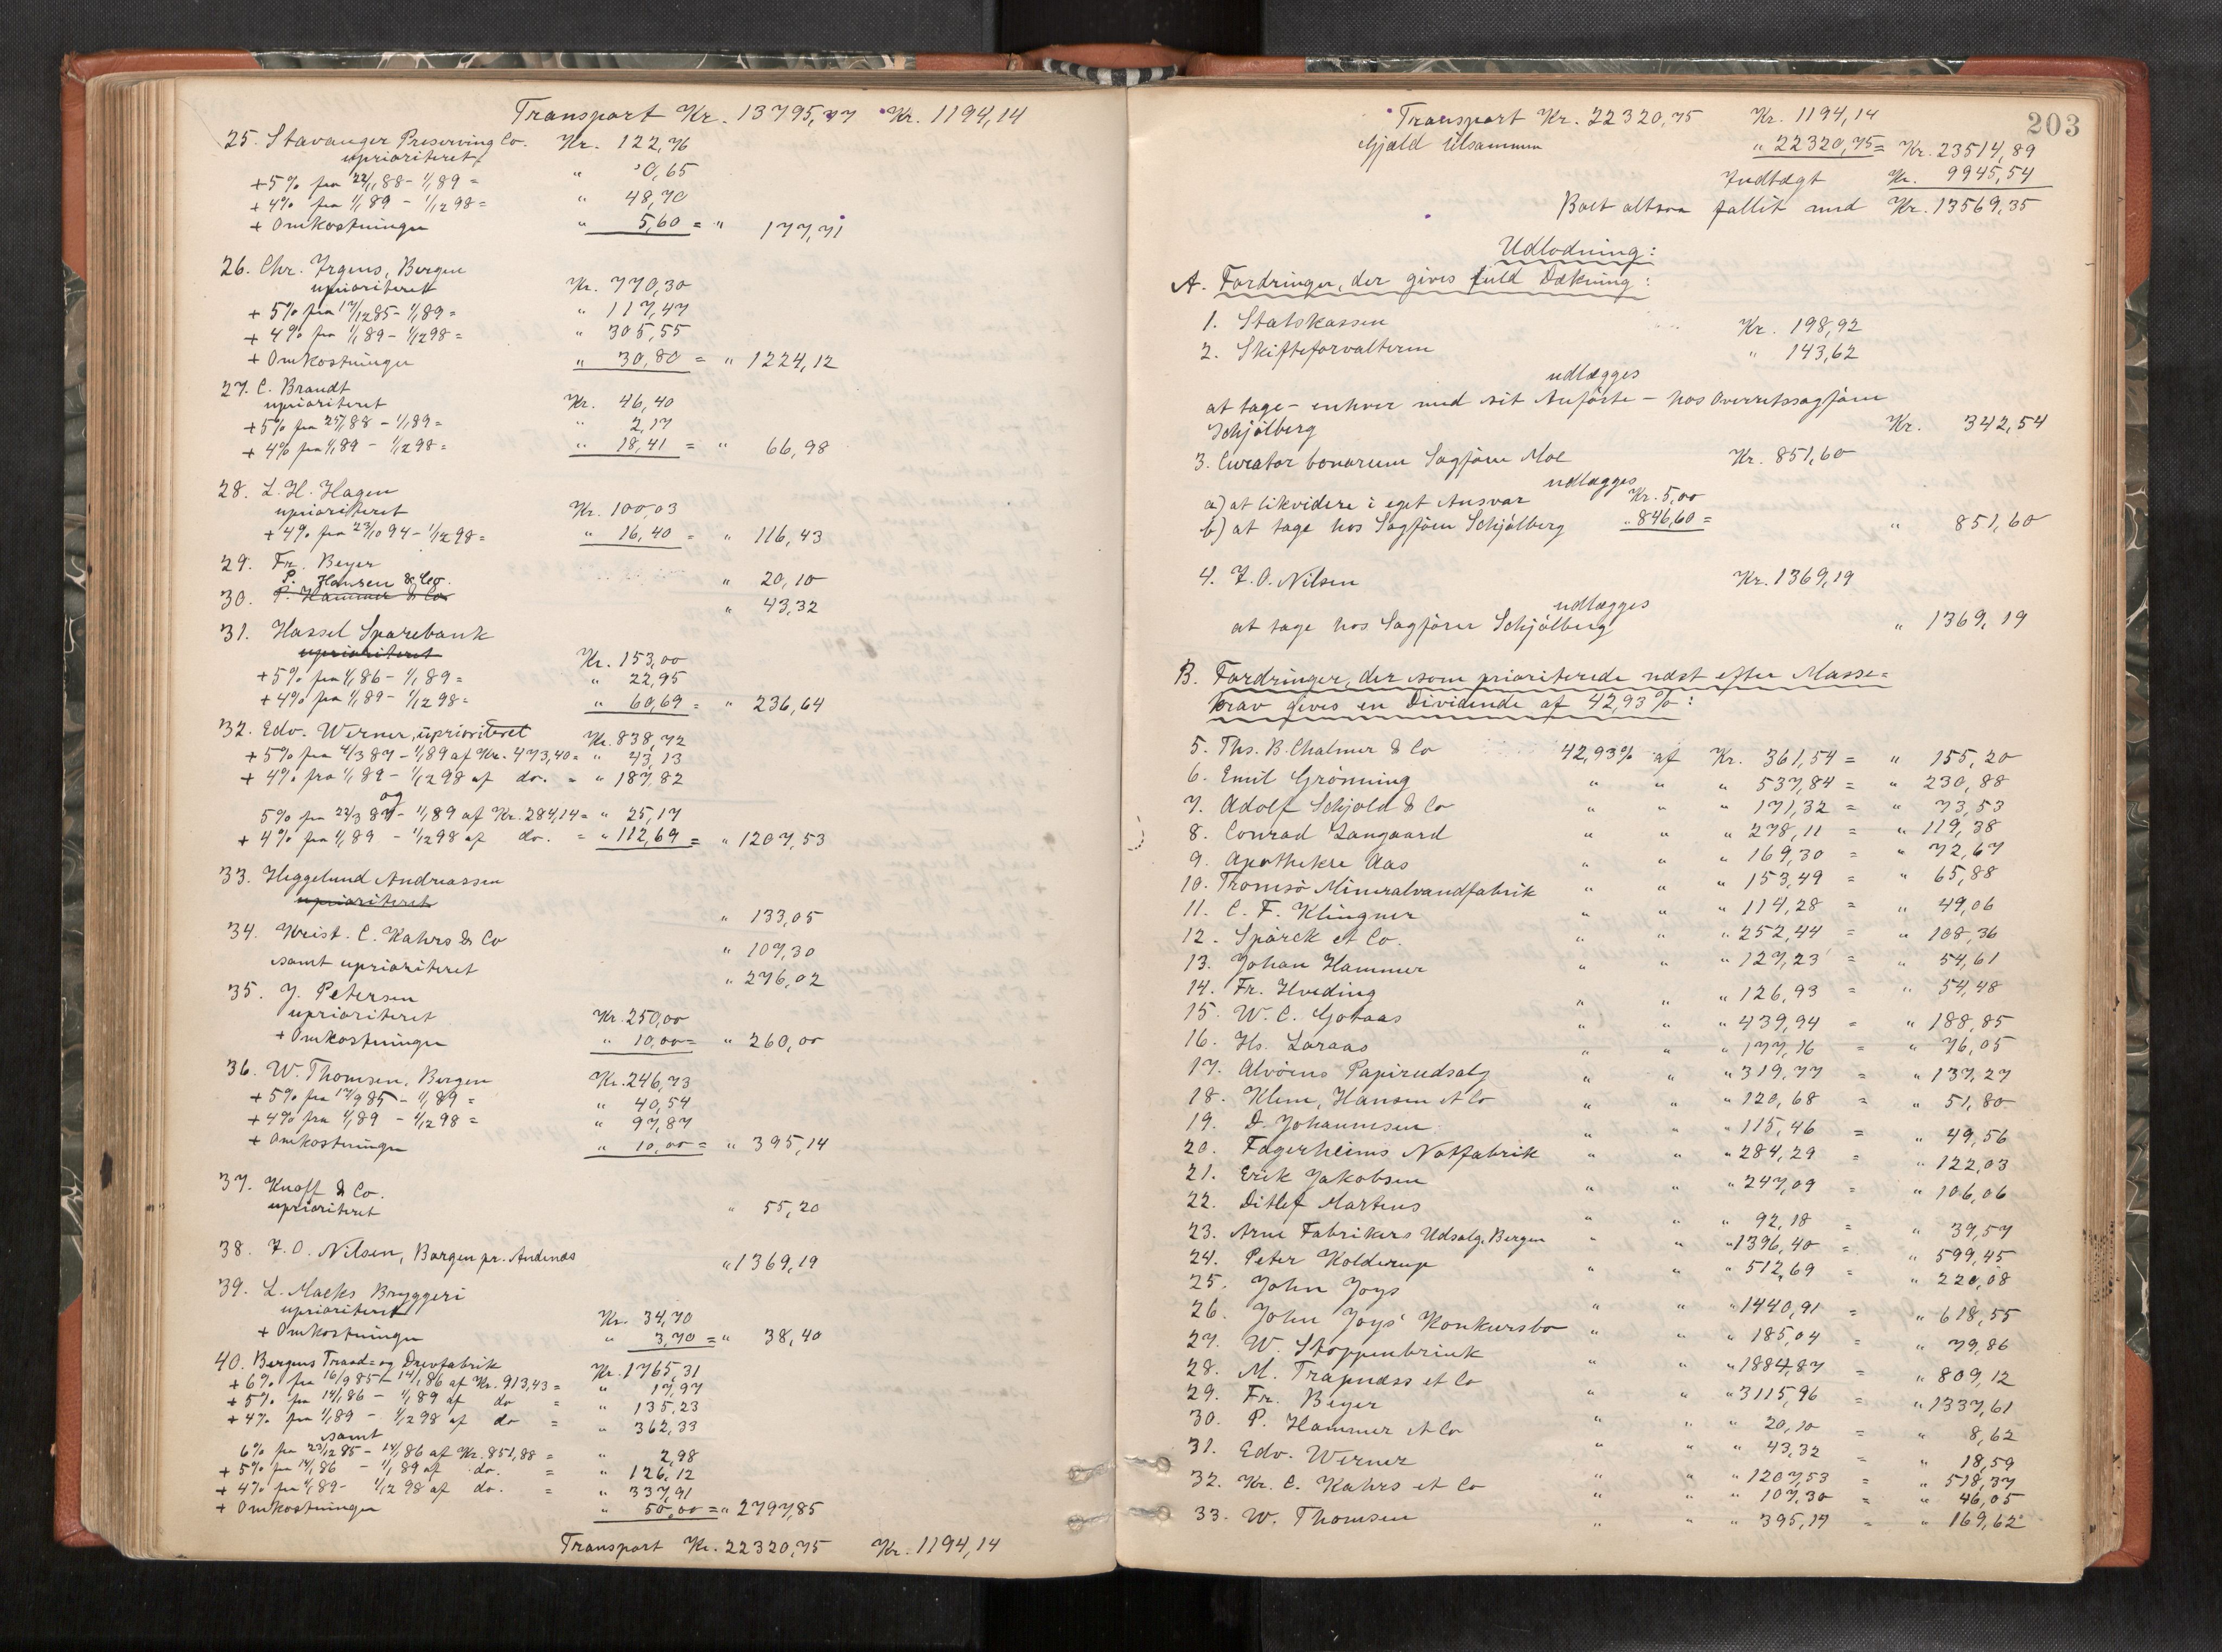 Transport Kr. 13795,77 Kr. 1194,14
25. Stavanger Preserving Co. Kr. 122,76
uprioriteret
+5% fra 22/1 88 - 1/1 89 = " 0,65
+4% fra 1/1 89 - 1/12 98 = " 48,70
+ Omkostninger " 5,60 = " 177,71
26. Chr. Irgens, Bergen
uprioriteret Kr. 770,30
+5% fra 17/12 85 - 1/1 89 = " 117,47
+4% fra 1/1 89 - 1/12 98 = " 305,55
+ Omkostninger " 30,80 = " 1224,12
27. C. Brandt
uprioriteret Kr. 46,40
+5% fra 25/1 88 - 1/1 89 = " 2,17
+4% fra 1/1 89 - 1/12 98 = " 18,41 = " 66,98
28. L. H. Hagen
uprioriteret Kr. 100,03
+4% fra 23/10 94 - 1/12 98 = " 16,40 = " 116,43
29. Fr. Beyer " 20,10
P. Hansen & Co.
30. P. Hammer & Co " 43,32
31. Hassel Sparebank
uprioriteret Kr. 153,00
+5% fra 1/1 86 - 1/1 89 = " 22,95
+4% fra 1/1 89 - 1/12 98 = " 60,69 = " 236,64
32. Edv. Werner, uprioriteret Kr. 838,72
+5% fra 4/3 87 - 1/1 89 af Kr. 473,40 = " 43,13
+4% fra 1/1 89 - 1/12 98 af do. = " 187,82
og
5% fra 22/3 87 - 1/1 89 af Kr. 284,14 = " 25,17
+4% fra 1/1 89 - 1/12 98 af do. = " 112,69 = " 1207,53
33. Heggelund Andreassen
uprioriteret " 133,05
34. Krist. C. Kahrs & Co " 107,30
samt uprioriteret " 276,02
35. J. Petersen
uprioriteret Kr. 250,00
+ Omkostninger " 10,00 = " 260,00
36. W. Thomsen, Bergen Kr. 246,73
+5% fra 17/9 85 - 1/1 89 = " 40,54
+4% fra 1/1 89 - 1/12 98 = " 97,87
+ Omkostninger " 10,00 = " 395,14
37. Knoff & Co.
uprioriteret " 55,20
38. F. O. Nilsen, Borgen pr. Andenæs " 1369,19
39. L. Macks Bryggeri
uprioriteret Kr. 34,70
+ Omkostninger " 3,70 = " 38,40
40. Bergens Traad- og Drevfabrik Kr. 1765,31
+6% fra 16/9 85 - 14/1 86 af Kr. 913,43 = " 17,97
+5% fra 14/1 86 - 1/1 89 af do = " 135,23
+4% fra 1/1 89 - 1/12 98 af do = " 362,33
samt
6% fra 23/12 85 - 14/1 86 af Kr. 851,88 = " 2,98
+5% fra 14/1 86 - 1/1 89 af do. = " 126,12
+4% fra 1/1 89 - 1/12 98 af do. = " 337,91
+ Omkostninger " 50,00 = " 2797,85
Transport Kr. 22320,75 Kr. 1194,14
203
Transport Kr. 22320,75 Kr. 1194,14
Gjæld tilsammen " 22320,75 = Kr. 23514,89
Indtægt Kr. 9945,54
Boet altsaa fallit med Kr. 13569,35
Udlodning:
A. Fordringer, der gives fuld Dækning:
1. Statskassen Kr. 198,92
2. Skifteforvalteren " 143,62
udlægges
at tage - enhver med sit Anførte - hos Overretssagfører
Schjølberg Kr. 342,54
3. Curator bonorum Sagfører Moe Kr. 851,60
udlægges
a) at likvidere i eget Ansvar Kr. 5,00
b) at tage hos Sagfører Schjølberg " 846,60 = " 851,60
4. F. O. Nilsen Kr. 1369,19
udlægges
at tage hos Sagfører Schjølberg " 1369,19
B. Fordringer, der som prioriterede næst efter Masse-
krav gives en Dividende af 42,93%:
5. Ths. B. Chalmer & Co 42,93% af Kr. 361,54 = " 155,20
6. Emil Grønning " " " 537,84 = " 230,88
7. Adolf Schjold & Co " " " 171,32 = " 73,53
8. Conrad Langaard " " " 278,11 = " 119,38
9. Apotheker Aas " " " 169,30 = " 72,67
10. Tromsø Mineralvandfabrik " " " 153,49 = " 65,88
11. C. F. Klingner " " " 114,28 = " 49,06
12. Spärck et Co. " " " 252,44 = " 108,36
13. Johan Hammer " " " 127,23 = " 54,61
14. Fr. Hveding " " " 126,93 = " 54,48
15. W. C. Gotaas " " " 439,94 = " 188,85
16. Hs. Loraas " " " 177,16 = " 76,05
17. Alvøens Papirudsalg " " " 319,77 = " 137,27
18. Klem, Hansen et Co " " " 120,68 = " 51,80
19. D. Johannesen " " " 115,46 = " 49,56
20. Fagerheims Notfabrik " " " 284,29 = " 122,03
21. Erik Jakobsen " " " 247,09 = " 106,06
22. Ditlef Martens " " " 92,18 = " 39,57
23. Arne Fabrikers Udsalg, Bergen " " " 1396,40 = " 599,45
24. Peter Kolderup " " " 512,69 = " 220,08
25. John Joys " " " 1440,91 = " 618,55
26. John Joys' Konkursbo " " " 185,04 = " 79,86
27. W. Stoppenbrink " " " 1884,87 = " 809,12
28. M. Trapness et Co " " " 3115,96 = " 1337,61
29. Fr. Beyer " " " 20,10 = " 8,62
30. P. Hammer et Co " " " 43,32 = " 18,59
31. Edv. Werner " " " 1207,53 = " 518,37
32. Kr. C. Kahrs et Co " " " 107,30 = " 46,05
33. W. Thomsen " " " 395,14 = " 169,62